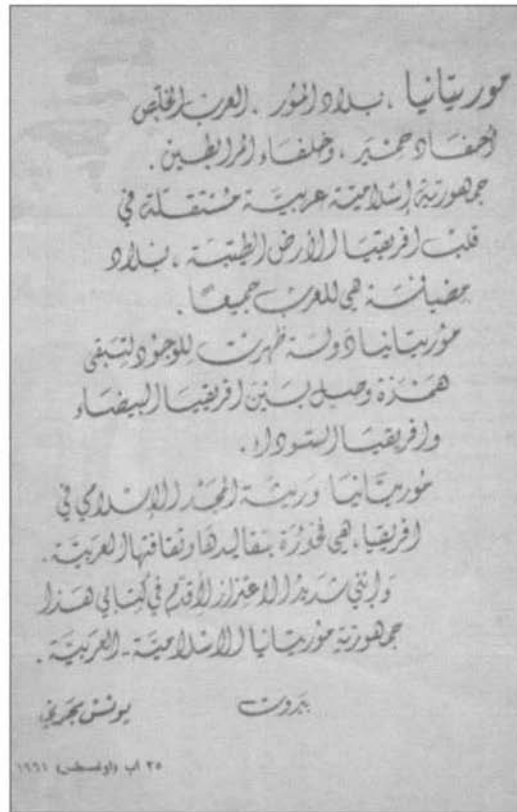 موريتانيا ، بلاد المور ، العرب الخلّص
أحفاد حمير ، وخلفاء المرابطين .
جمهورية إسلامية عربية مستقلة في
قلب افريقيا الأرض الطيبة ، بلاد
مضيافة هي للعرب جميعًا .
موريتانيا دولة ظهرت للوجود لتبقى
همزة وصل بين افريقيا البيضاء
وافريقيا السوداء .
موريتانيا وريثة المجد الإسلامي في
افريقيا، هي فخورة بتقاليدها وثقافتها العربية .
وإنني شديد الاعتزاز لأقدم في كتابي هذا
جمهورية موريتانيا الإسلامية - العربية .
بيروت يونس بحري
٢٥ اب (اوغسطس) ١٩٦١